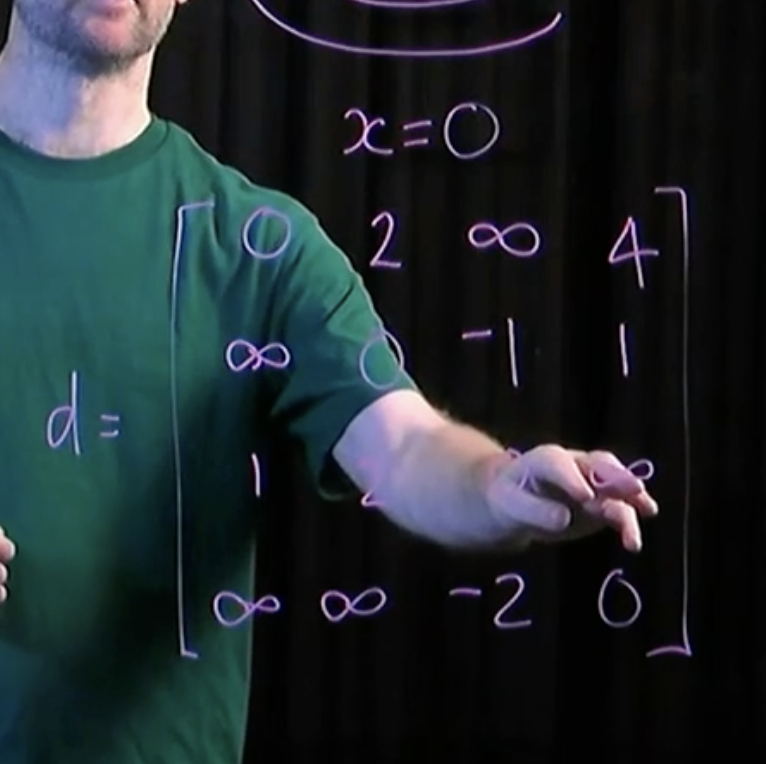 x=0
0 2 ∞ 4
∞ 0 -1 1
d=
1 2 ∞
∞ ∞ -2 0